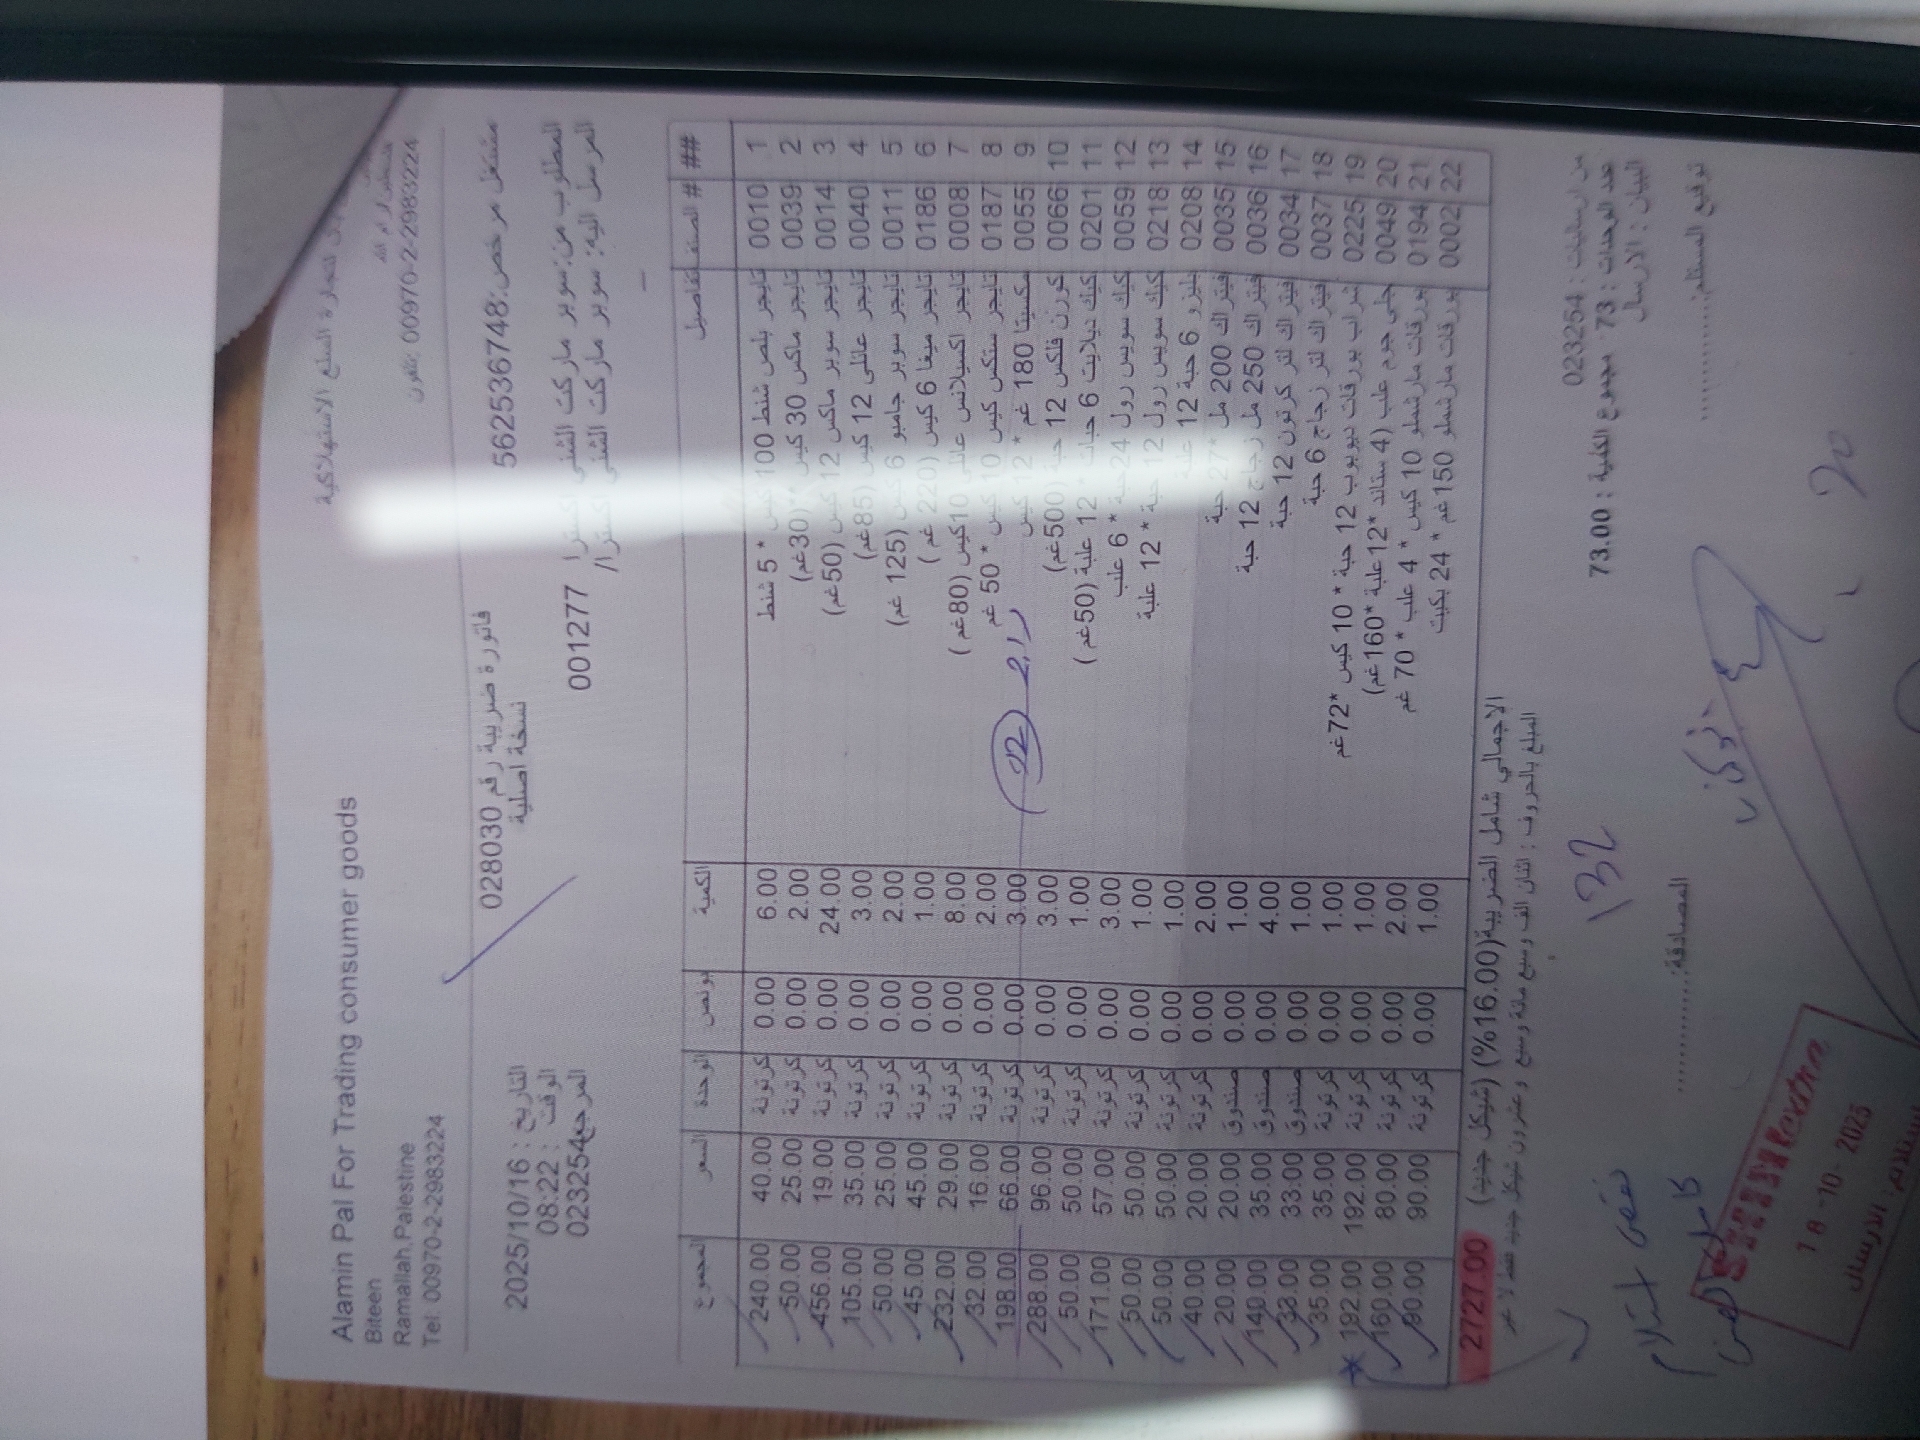 Alamin Pal For Trading consumer goods
لتجارة السلع الاستهلاكية
Biteen
Ramallah,Palestine
Tel: 00970-2-2983224
تلفون: 00970-2-2983224
مشتغل مرخص: 562536748
فاتورة ضريبية رقم 028030
نسخة اصلية
التاريخ : 2025/10/16
الوقت : 08:22
المرجع 023254
المطلوب من: سوبر ماركت الشني اكسترا 001277
المرسل اليه: سوبر ماركت الشني اكسترا/
## الصنف# تفاصيل الكمية بونص الوحدة السعر المجموع
1 0010 تايجر بلص شنط 100 كيس * 5 شنط 6.00 0.00 كرتونة 40.00 240.00
2 0039 تايجر ماكس 30 كيس (30غم) 2.00 0.00 كرتونة 25.00 50.00
3 0014 تايجر سوبر ماكس 12 كيس (50غم) 24.00 0.00 كرتونة 19.00 456.00
4 0040 تايجر عائلي 12 كيس (85غم) 3.00 0.00 كرتونة 35.00 105.00
5 0011 تايجر سوبر جامبو 6 كيس (125 غم) 2.00 0.00 كرتونة 25.00 50.00
6 0186 تايجر ميغا 6 كيس (220 غم) 1.00 0.00 كرتونة 45.00 45.00
7 0008 تايجر اكسيلانس عائلي 10 كيس (80غم) 8.00 0.00 كرتونة 29.00 232.00
8 0187 تايجر ستكس كيس 10 كيس * 50 غم 2.00 0.00 كرتونة 16.00 32.00
9 0055 مكسيتا 180 غم * 12 كيس 3.00 0.00 كرتونة 66.00 198.00
10 0066 كورن فلكس 12 حبة (500غم) 3.00 0.00 كرتونة 96.00 288.00
11 0201 كيك ديلايت 6 حبات * 12 علبة (50غم) 1.00 0.00 كرتونة 50.00 50.00
12 0059 كيك سويس رول 24 حبة * 6 علب 3.00 0.00 كرتونة 57.00 171.00
13 0218 كيك سويس رول 12 حبة * 12 علبة 1.00 0.00 كرتونة 50.00 50.00
14 0208 بليزو 6 حبة 12 علبة 1.00 0.00 كرتونة 50.00 50.00
15 0035 فيتراك 200 مل *27 حبة 2.00 0.00 كرتونة 20.00 40.00
16 0036 فيتراك 250 مل زجاج 12 حبة 1.00 0.00 صندوق 20.00 20.00
17 0034 فيتراك لتر كرتون 12 حبة 4.00 0.00 صندوق 35.00 140.00
18 0037 فيتراك لتر زجاج 6 حبة 1.00 0.00 صندوق 33.00 33.00
19 0225 شراب بورقات ديوبوب 12 حبة * 10 كيس *72غم 1.00 0.00 كرتونة 35.00 35.00
20 0049 جلي جوم علب (4 ستاند *12 علبة *160غم) 1.00 0.00 كرتونة 192.00 192.00
21 0194 بورقات مارشملو 10 كيس * 4 علب * 70 غم 2.00 0.00 كرتونة 80.00 160.00
22 0002 بورقات مارشملو 150 غم * 24 بكيت 1.00 0.00 كرتونة 90.00 90.00
22
الاجمالي شامل الضريبية(16.00%) (شيكل جديد) 2727.00
المبلغ بالحروف : اثنان الف و سبع مائة و سبع و عشرون شيكل جديد فقط لا غير
من ارساليات : 023254
عدد الوحدات : 73 مجموع الكمية : 73.00
البيان : الارسال
132
توقيع المستلم:
المصادقة:
18-10-2025